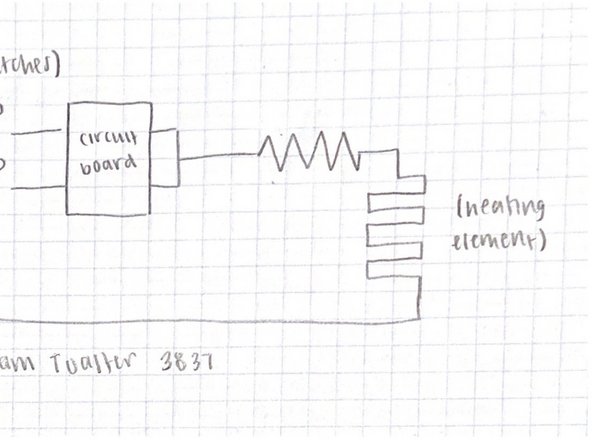 tches)
circuit
board
(heating
element)
am Toaster 3837